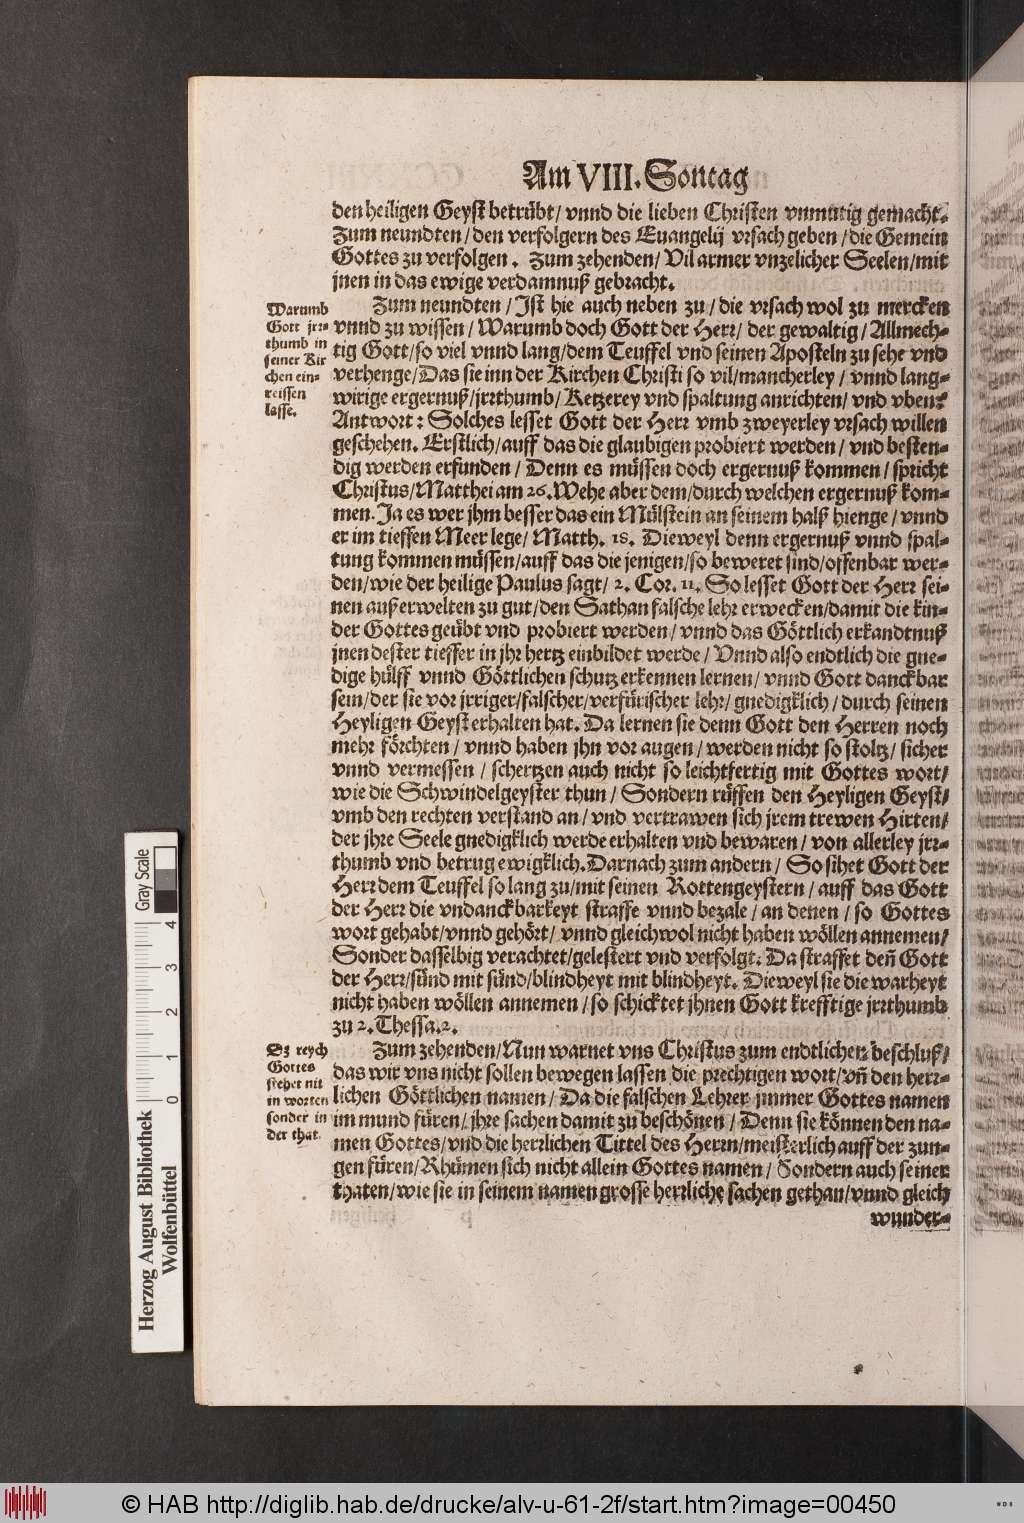 Am VIII. Sontag
den heiligen Geyst betrübt/ vnnd die lieben Christen vnmutig gemacht.
Zum neundten/ den verfolgern des Euangelij vrsach geben/ die Gemein
Gottes zu verfolgen. Zum zehenden/ Vil armer vnzelicher Seelen/ mit
jnen in das ewige verdamnuß gebracht.
Warumb
Gott jrr-
thumb in
seiner Kir
chen ein-
reissen
lasse.
Zum neundten/ Ist hie auch neben zu/ die vrsach wol zu mercken
vnnd zu wissen/ Warumb doch Gott der Herr/ der gewaltig/ Allmech-
tig Gott/ so viel vnnd lang/ dem Teuffel vnd seinen Aposteln zu sehe vnd
verhenge/ Das sie inn der Kirchen Christi so vil/ mancherley/ vnnd lang-
wirige ergernuß/ jrrthumb/ Ketzerey vnd spaltung anrichten/ vnd vben?
Antwort: Solches lesset Gott der Herr vmb zweyerley vrsach willen
geschehen. Erstlich/ auff das die glaubigen probiert werden/ vnd besten-
dig werden erfunden/ Denn es müssen doch ergernuß kommen/ spricht
Christus/ Matthei am 26. Wehe aber dem/ durch welchen ergernuß kom-
men. Ja es wer jhm besser das ein Mülstein an seinem halß hienge/ vnnd
er im tieffen Meer lege/ Matth. 18. Dieweyl denn ergernuß vnnd spal-
tung kommen müssen/ auff das die jenigen/ so beweret sind/ offenbar wer-
den/ wie der heilige Paulus sagt/ 2. Cor. 11. So lesset Gott der Herr sei-
nen außerwelten zu gut/ den Sathan falsche lehr erwecken/ damit die kin-
der Gottes geübt vnd probiert werden/ vnnd das Göttlich erkandtnuß
jnen dester tieffer in jhr hertz einbildet werde/ Vnnd also endtlich die gne-
dige hülff vnnd Göttlichen schutz erkennen lernen/ vnnd Gott danckbar
sein/ der sie vor jrriger/ falscher/ verfürischer lehr/ gnedigklich/ durch seinen
Heyligen Geyst erhalten hat. Da lernen sie denn Gott den Herren noch
mehr förchten/ vnnd haben jhn vor augen/ werden nicht so stoltz/ sicher
vnnd vermessen/ schertzen auch nicht so leichtfertig mit Gottes wort/
wie die Schwindelgeyster thun/ Sondern rüffen den Heyligen Geyst/
vmb den rechten verstand an/ vnd vertrawen sich jrem trewen Hirten/
der jhre Seele gnedigklich werde erhalten vnd bewaren/ von allerley jrr-
thumb vnd betrug ewigklich. Darnach zum andern/ So sihet Gott der
Herr dem Teuffel so lang zu/ mit seinen Rottengeystern/ auff das Gott
der Herr die vndanckbarkeyt straffe vnnd bezale/ an denen/ so Gottes
wort gehabt/ vnnd gehört/ vnnd gleichwol nicht haben wöllen annemen/
Sonder dasselbig verachtet/ gelestert vnd verfolgt. Da straffet deñ Gott
der Herr/ sünd mit sünd/ blindheyt mit blindheyt. Dieweyl sie die warheyt
nicht haben wöllen annemen/ so schicktet jhnen Gott krefftige jrrthumb
zu 2. Thessa. 2.
Dz reych
Gottes
stehet nit
in worten
sonder in
der that.
Zum zehenden/ Nun warnet vns Christus zum endtlichen beschluß/
das wir vns nicht sollen bewegen lassen die prechtigen wort/ vñ den herr-
lichen Göttlichen namen/ Da die falschen Lehrer jmmer Gottes namen
im mund füren/ jhre sachen damit zu beschönen/ Denn sie können den na-
men Gottes/ vnd die herrlichen Tittel des Herrn/ meisterlich auff der zun-
gen füren/ Rhümen sich nicht allein Gottes namen/ Sondern auch seiner
thaten/ wie sie in seinem namen grosse herrliche sachen gethan/ vnnd gleich
wunder-
Herzog August Bibliothek
Wolfenbüttel
0 1 2 3 4
Gray Scale
© HAB http://diglib.hab.de/drucke/alv-u-61-2f/start.htm?image=00450